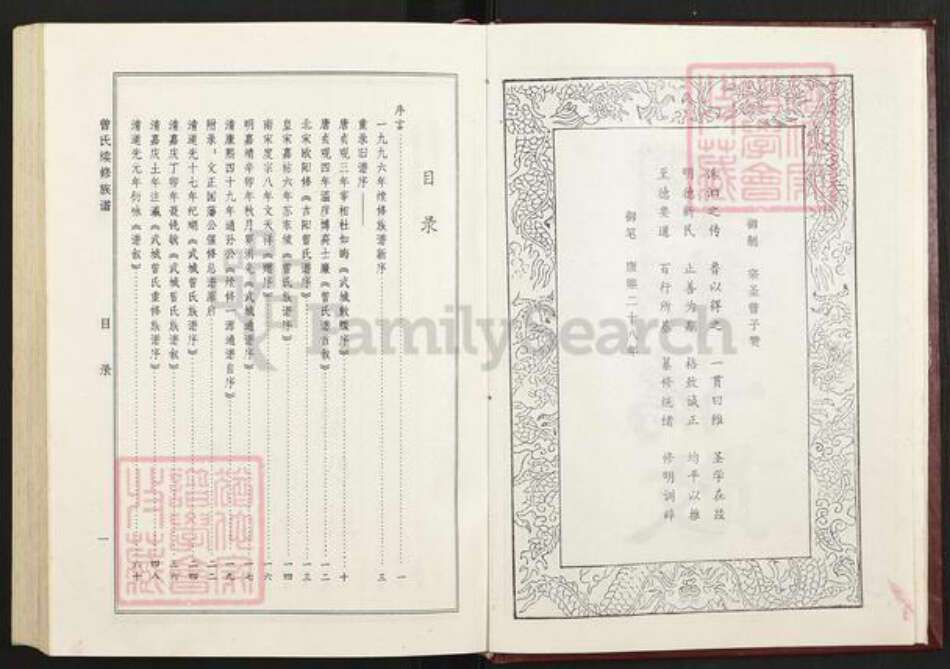 御制 宗圣曾子赞
洙泗之传 鲁以得之 一贯曰唯 圣学在兹
明德新民 止善为期 格致诚正 均平以推
至德要道 百行所基 纂修统绪 修明训辞
御笔 康熙二十八年
目录
序言 一
一九九六年续修族谱新序 三
重录旧谱序——
唐贞观三年宰相杜如晦《武城 序》 十
唐贞观四年温彦博高士廉《曾氏谱 叙》 一二
北宋欧阳修《吉阳曾氏谱序》 一三
皇宋嘉祐六年苏东坡《曾氏族谱序》 一四
南宋度宗八年文天祥《赠序》 一六
明嘉靖辛卯年秋月 《武城通谱序》 一七
清康熙四十九年 《续修一源通谱自序》 一九
附录：文正国藩公倡修总谱 启 二二
清道光十七年纪 《武城曾氏族谱序》 二四
清嘉庆丁卯年聂铣敏《武城曾氏族谱叙》 三六
清嘉庆 年汪 《武城曾氏重修族谱序》 四八
清道光元年衍咏《谱叙》 六十
曾氏续修族谱
目录
一
FamilySearch